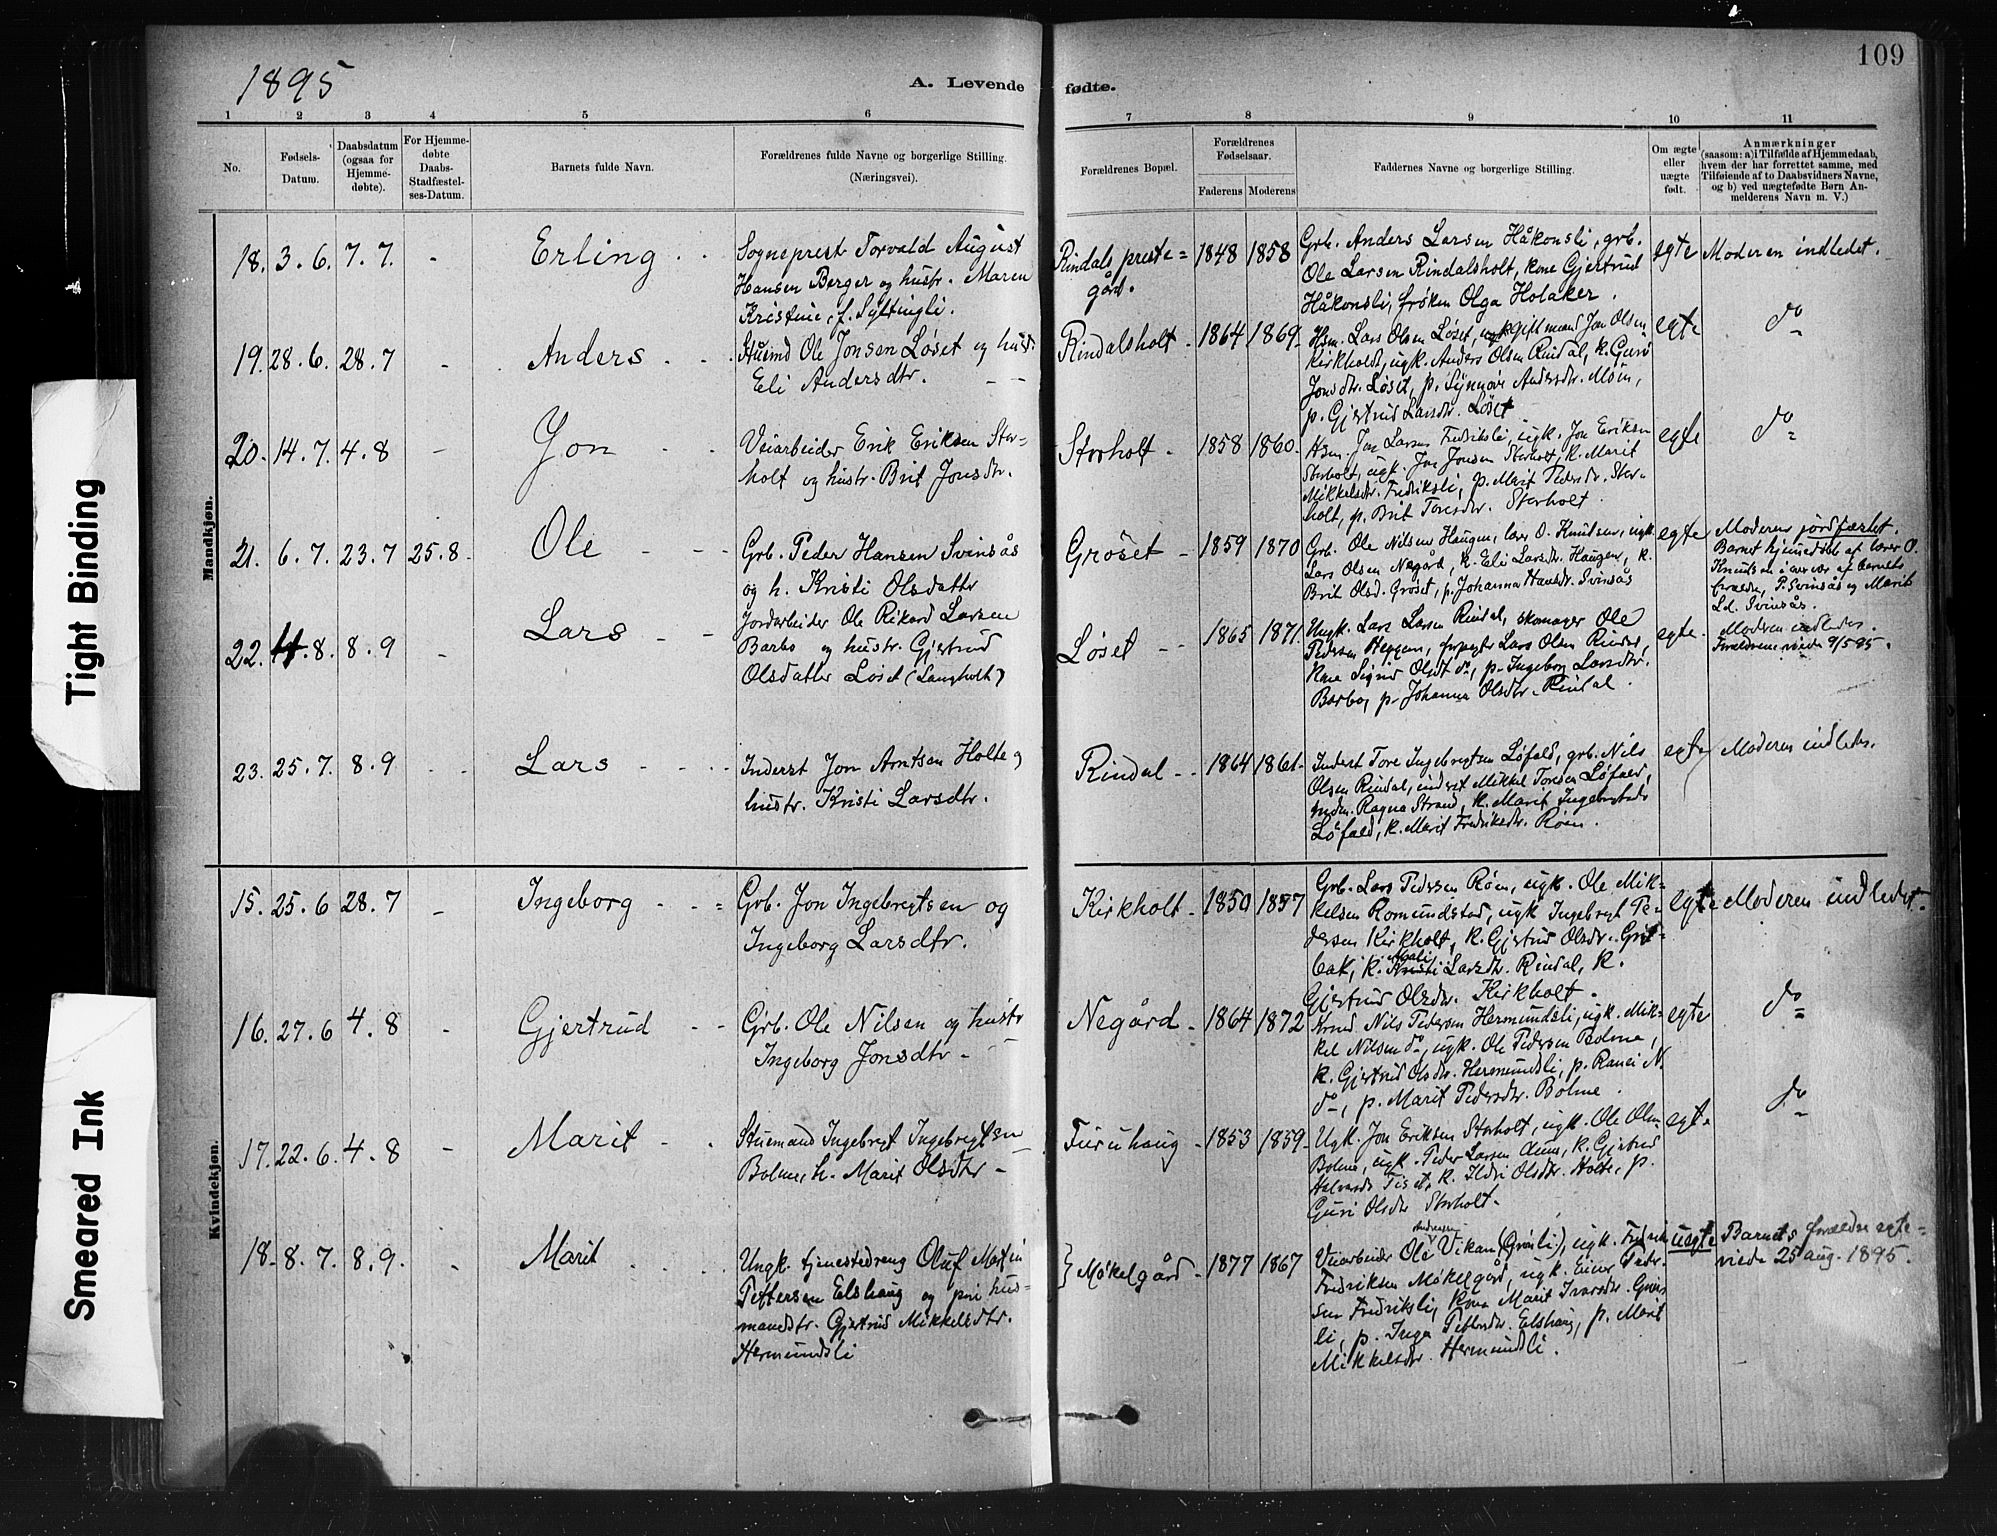 109
1895
A. Levende
fødte.
1 2 3 4 5 6 7 8 9 10 11
No.
Fødsels-
Datum.
Daabsdatum
(ogsaa for
Hjemme-
døbte).
For Hjemme-
døbte
Daabs-
Stadfæstel-
ses-Datum.
Barnets fulde Navn.
Forældrenes fulde Navne og borgerlige Stilling.
(Næringsvei).
Forældrenes Bopæl.
Forældrenes
Fødselsaar.
Faderens Moderens
Faddernes Navne og borgerlige Stilling.
Om ægte
eller
uægte
født.
Anmærkninger
(saasom: a) i Tilfælde af Hjemmedaab,
hvem der har forrettet samme, med
Tilføiende af to Daabsvidners Navne,
og b) ved uægtefødte Børn An-
melderens Navn m. V.)
Mandkjøn.
18. 3. 6. 7. 7. - Erling
Sogneprest Torvald August
Hansen Berger og hustr. Maren
Kristine, f. Syltingli.
Rindals preste=
gård.
1848 1858
Grb. Anders Larsen Håkonsli, grb.
Ole Larsen Rindalsholt, kone Gjertrud
Håkonsli, frøken Olga Holaker.
egte Moderen indledet.
19. 28. 6. 28. 7 - Anders
Husmd Ole Jonsen Løset og hustr.
Eli Andersdtr.
Rindalsholt - 1864 1869
Hsm. Lars Olsen Løset, giftmand Jon Olsen
Kirkholt, ugk. Anders Olsen Rindal, k. Guri
Jonsdtr. Løset, p. Synnøve Andersdtr. Møn,
p. Gjertrud Larsdtr. Løset
egte do
20. 14. 7. 4. 8 - Jon
Veiarbeider Erik Eriksen Stor=
holt og hustr. Brit Jonsdtr.
Storholt - 1858 1860.
Hsm. Jon Larsen Fredriksli, ugk. Jon Eriksen
Storholt, ugk. Jon Jonsen Storholt, k. Marit
Mikkelsdtr. Fredriksli, p. Marit Pedersdtr. Stor-
holt, p. Brit Toresdtr. Storholt
egte do
21. 6. 7. 23. 7 25. 8 - Ole
Grb. Peder Hansen Svinsås
og h. Kristi Olsdatter
Grøset - 1859 1870
Grb. Ole Nilsen Haugen, lærer O. Knudsen, ugk.
Lars Olsen Negård, k. Eli Larsdtr. Haugen, k.
Brit Olsd. Grøset, p. Johanna Hansdtr. Svinsås
egte Moderen jordfæstet.
Barnet hjemmedøbt af lærer O.
Knudsen i nærvær af barnets
P. Svinsås og Marit
Ld. Svinsås.
22. 4. 8. 8. 9 - Lars
Jordarbeider Ole Rikard Larsen
Barbo og hustr. Gjertrud
Olsdatter Løset (Langholt)
Løset - 1865 1871.
Ungk. Lars Larsen Rindal, skomager Ole
Pedersen Heggem, Lars Olsen Rindal,
Kone Sigrid Olsdt do, p. Ingeborg Larsdtr.
Barbo, p. Johanna Olsdtr. Rindal.
egte. Moderen indledes.
Forældrene viede 9/5 95.
23. 25. 7. 8. 9 - Lars
Inderst Jon Arntsen Holte og
hustr. Kristi Larsdtr.
Rindal - 1864 1861
Inderst Tore Ingebrigtsen Løfald, grb. Nils
Olsen Rindal, inderst Mikkel Toresen Løfald,
Ragna Strand, k. Marit Ingebrigtsdr
Løfald, k. Marit Fredriksdtr. Røen.
egte Moderen indledes.
Kvindekjøn.
15. 25. 6 28. 7 - Ingeborg
Grb. Jon Ingebrigtsen og
Ingeborg Larsdtr.
Kirkholt - 1850 1857
Grb. Lars Pedersen Røen, ugk. Ole Mik=
kelsen Romundstad, ugk Ingebrigt Pe-
dersen Kirkholt, k. Gjertrud Olsdtr.
bak, k. Larsdtr. Rindal, k.
Gjertrud Olsdtr. Kirkholt.
egte Moderen indledet
16. 27. 6 4. 8 - Gjertrud
Grb. Ole Nilsen og hustr
Ingeborg Jonsdtr -
Negård - 1864 1872
Nils Pedersen Hermundsli, ugk. Mik-
kel Nilsen do, ugk. Ole Pedersen Bolme,
k. Gjertrud Olsdtr. Hermundsli, p. Ranei N.
do, p. Marit Pedersdtr. Bolme.
egte do
17. 22. 6. 4. 8 - Marit
Stuemand Ingebrigt Ingebrigtsen
Bolme, h. Marit Olsdtr -
Furuhaug - 1853 1859
Ugk. Jon Eriksen Storholt, ugk. Ole Olsen
Bolme, ugk. Peder Larsen Aune, k. Gjertrud
Halvorsdt Tiset, k. Ildri Olsdtr. Holte, p.
Guri Olsdtr Storholt.
egte do
18. 8. 7. 8. 9. - Marit
Ungk. tjenestedreng Oluf Martin
Pettersen Elshaug og pi. hus=
mandsdtr. Gjertrud Mikkelsdtr.
Hermundsli
} Møkelgård - 1877 1867
Veiarbeider Ole Andersen Vikan (Grønli), ugk. Fredrik
Fredriksen Møkelgård, ugk. Einar Peder-
sen Fredriksli, Kone Marit Ivarsdtr. Grøn-
li, p. Inga Pettersdtr. Elshaug, p. Marit
Mikkelsdtr. Hermundsli.
uegte Barnets forældre egte-
viede 25 aug. 1895.
Tight Binding
Smeared Ink